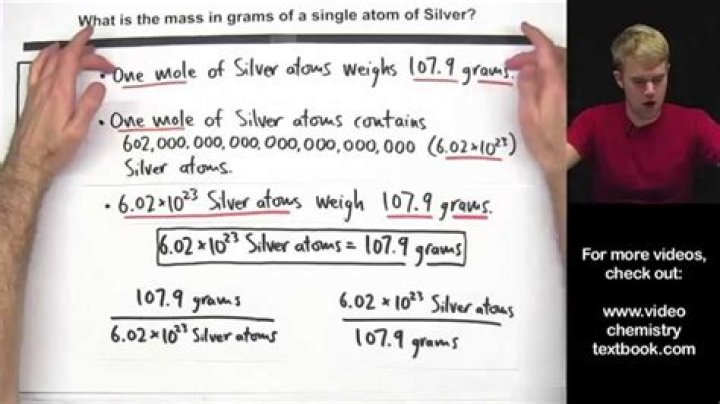 What is the mass in grams of a single atom of Silver?
• One mole of Silver atoms weighs 107.9 grams.
• One mole of Silver atoms contains
602,000,000,000,000,000,000,000 (6.02×10²³)
Silver atoms.
• 6.02×10²³ Silver atoms weigh 107.9 grams.
6.02×10²³ Silver atoms = 107.9 grams
107.9 grams
6.02×10²³ Silver atoms
6.02×10²³ Silver atoms
107.9 grams
For more videos,
check out:
www.video
chemistry
textbook.com